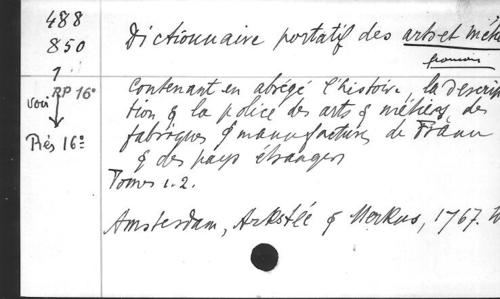 488
850
1
RP 16°
voir
Rés 16°
Dictionnaire portatif des arts et méti
françois
Contenant en abrégé l'histoire, la descrip
tion & la police des arts & métiers, des
fabriques & manufactures de France
& des pays étrangers
Tomes 1.2.
Amsterdam, Arkstée & Merkus, 1767.